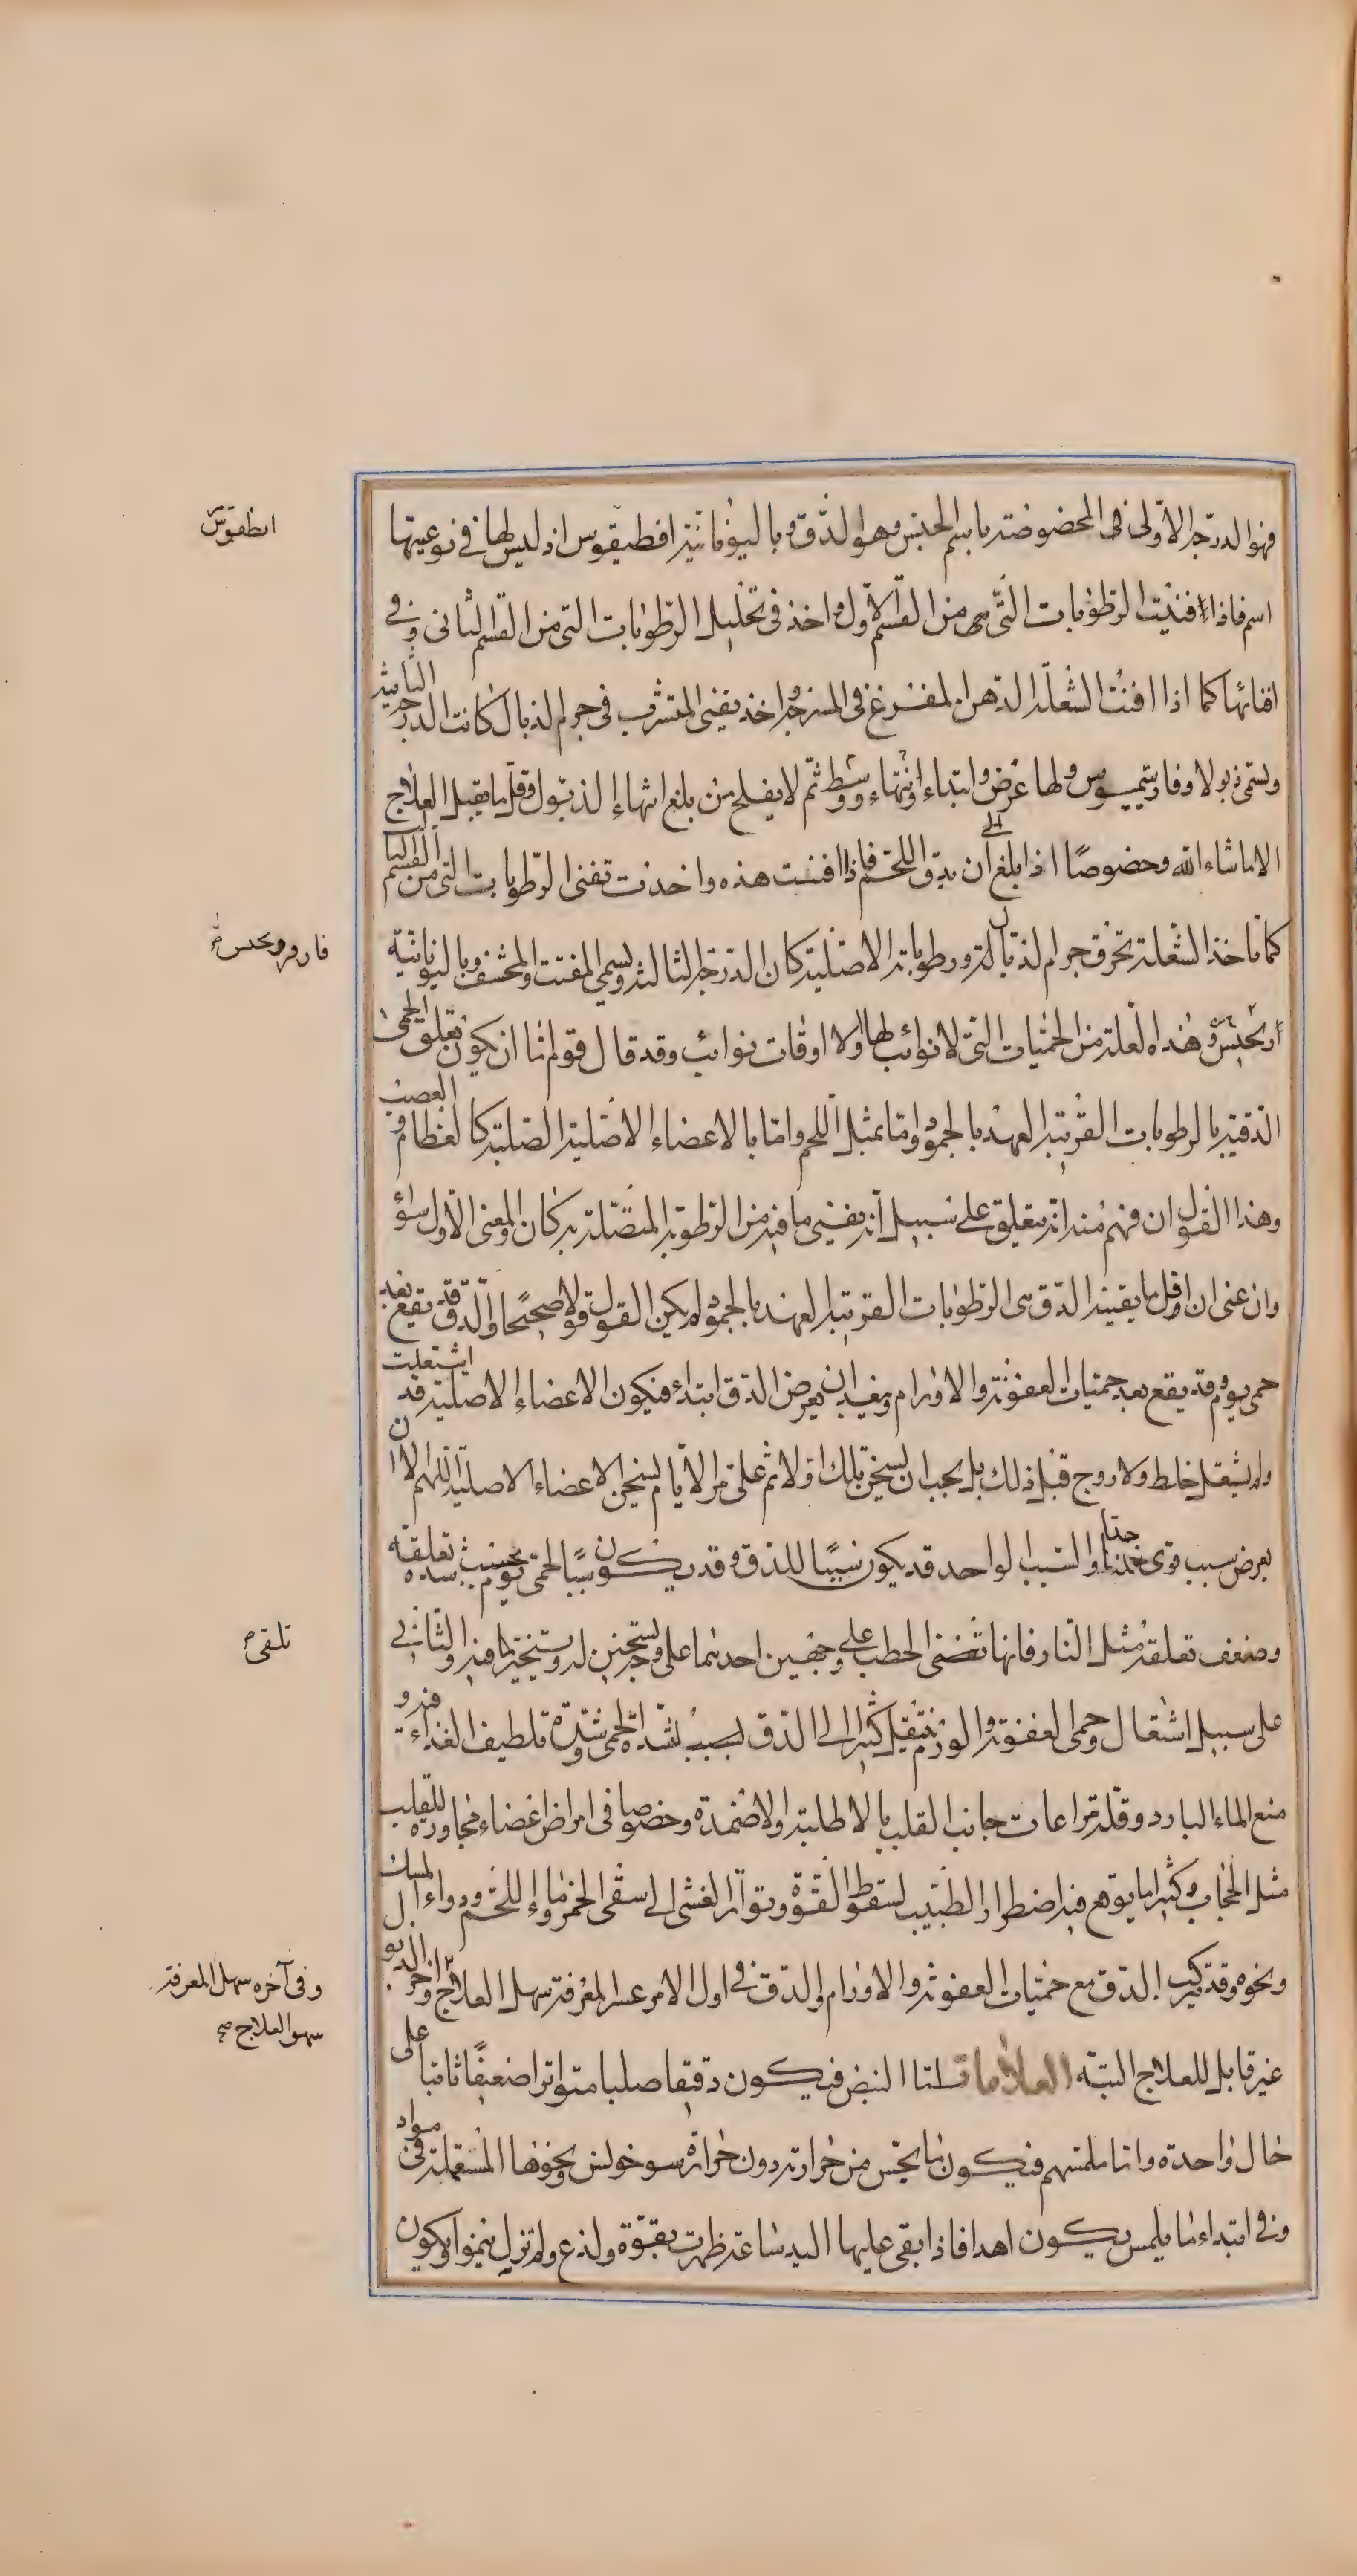 فهو الدرجة الاولى فهى المخصوصة باسم الجنس وهو الدق وباليونانية افطيقوس اذ ليس لها فى نوعيتها
اسم فاذا افنيت الرطوبات التى هى من القسم الاول واخذ فى تحليل الرطوبات التى من القسم الثانى وفى
افنائها كما اذا افنت الشعلة الدهن المفرغ فى المسرجة واخذ يفنى المتشرب فى جرم الذبال كانت الدرجة الثانية
وتسمى ذبولا وفارسيميوس ولها عرض وابتداء وانتهاء ووسط ثم لا يفلح من بلغ انتهاء الذبول وقل ما يقبل العلاج
الا ما شاء الله وخصوصًا اذا بلغ الى ان يدق اللحم فاذا افننت هذه واخذت تفنى الرطوبات التى من القسم الثالث
كما تاخذ الشعلة تحرق جرم الذبالة ورطوباته الاصلية كان الدرجة الثالثة ويسمى المفتت والمحشف وباليونانية
وهذه العلة من الحميات التى لا نوائب لها ولا اوقات نوائب وقد قال قوم اما ان يكون تعلق الحمى
الدقية بالرطوبات القريبة العهد بالجمود واما بمثل اللحم واما بالاعضاء الاصلية الصلبة كالعظام والعصب
وهذا القول ان فهم منه انه يتعلق على سبيل انه يفنى ما فيه من الرطوبة المتصلة به كان والمعنى الاول سواء
وان عنى ان اول ما يفنيه الدق هى الرطوبات القريبة العهد بالجمود لم يكن القول قولا صحيحًا والدق قد يقع بعد
حمى يوم وقد يقع بعد حميات العفونة والاورام وبعيد ان يعرض الدق ابتداء فيكون الاعضاء الاصلية قد اشتعلت
ولم يشتعل خلط ولا روح قبل ذلك بل يجب ان يسخن تلك اولا ثم على مر الايام يسخن الاعضاء الاصلية اللهم الا ان
يعرض سبب قوى جدا والسبب الواحد قد يكون سببًا للدق وقد يكون سببًا لحمى يوم بحسب شدة تعلقه
وضعف تعلقه مثل النار فانها تفنى الحطب على وجهين احدهما على وجه تسخين له وتبخير ما فيه والثانى
على سبيل اشتعال وحمى العفونة والورم ينتقل كثيرا الى الدق بسبب لشدة الحمى وشدة تلطيف الغذاء فيه و
منع الماء البارد وقلة مراعات جانب القلب بالاطلية والاضمدة وخصوصا فى امراض اعضاء مجاورة للقلب
مثل الحجاب وكثيرا ما يوقع فيه اضطرار الطبيب لسقوط القوة وتواتر الغشى الى سقى الخمر وماء اللحم ودواء المسك
ونحوه وقد تركب الدق مع حميات العفونة والاورام والدق فى اول الامر عسر المعرفة سهل العلاج واخر الذبول
غير قابل للعلاج البتة العلامات اما النبض فيكون دقيقا صلبا متواترا ضعيفًا ثابتا على
حال واحدة واما ملمسهم فيكون ما يحس من حرارته دون حرارة سونوخس ونحوها المشتعلة فى مواد
وفى ابتداء ما يلمس يكون اهدا فاذا بقى عليها اليد ساعة ظهرت بقوة ولذع ولم تزل ينمو ويكون
انطقوس
تلقى
وفى آخره سهل المعرفة